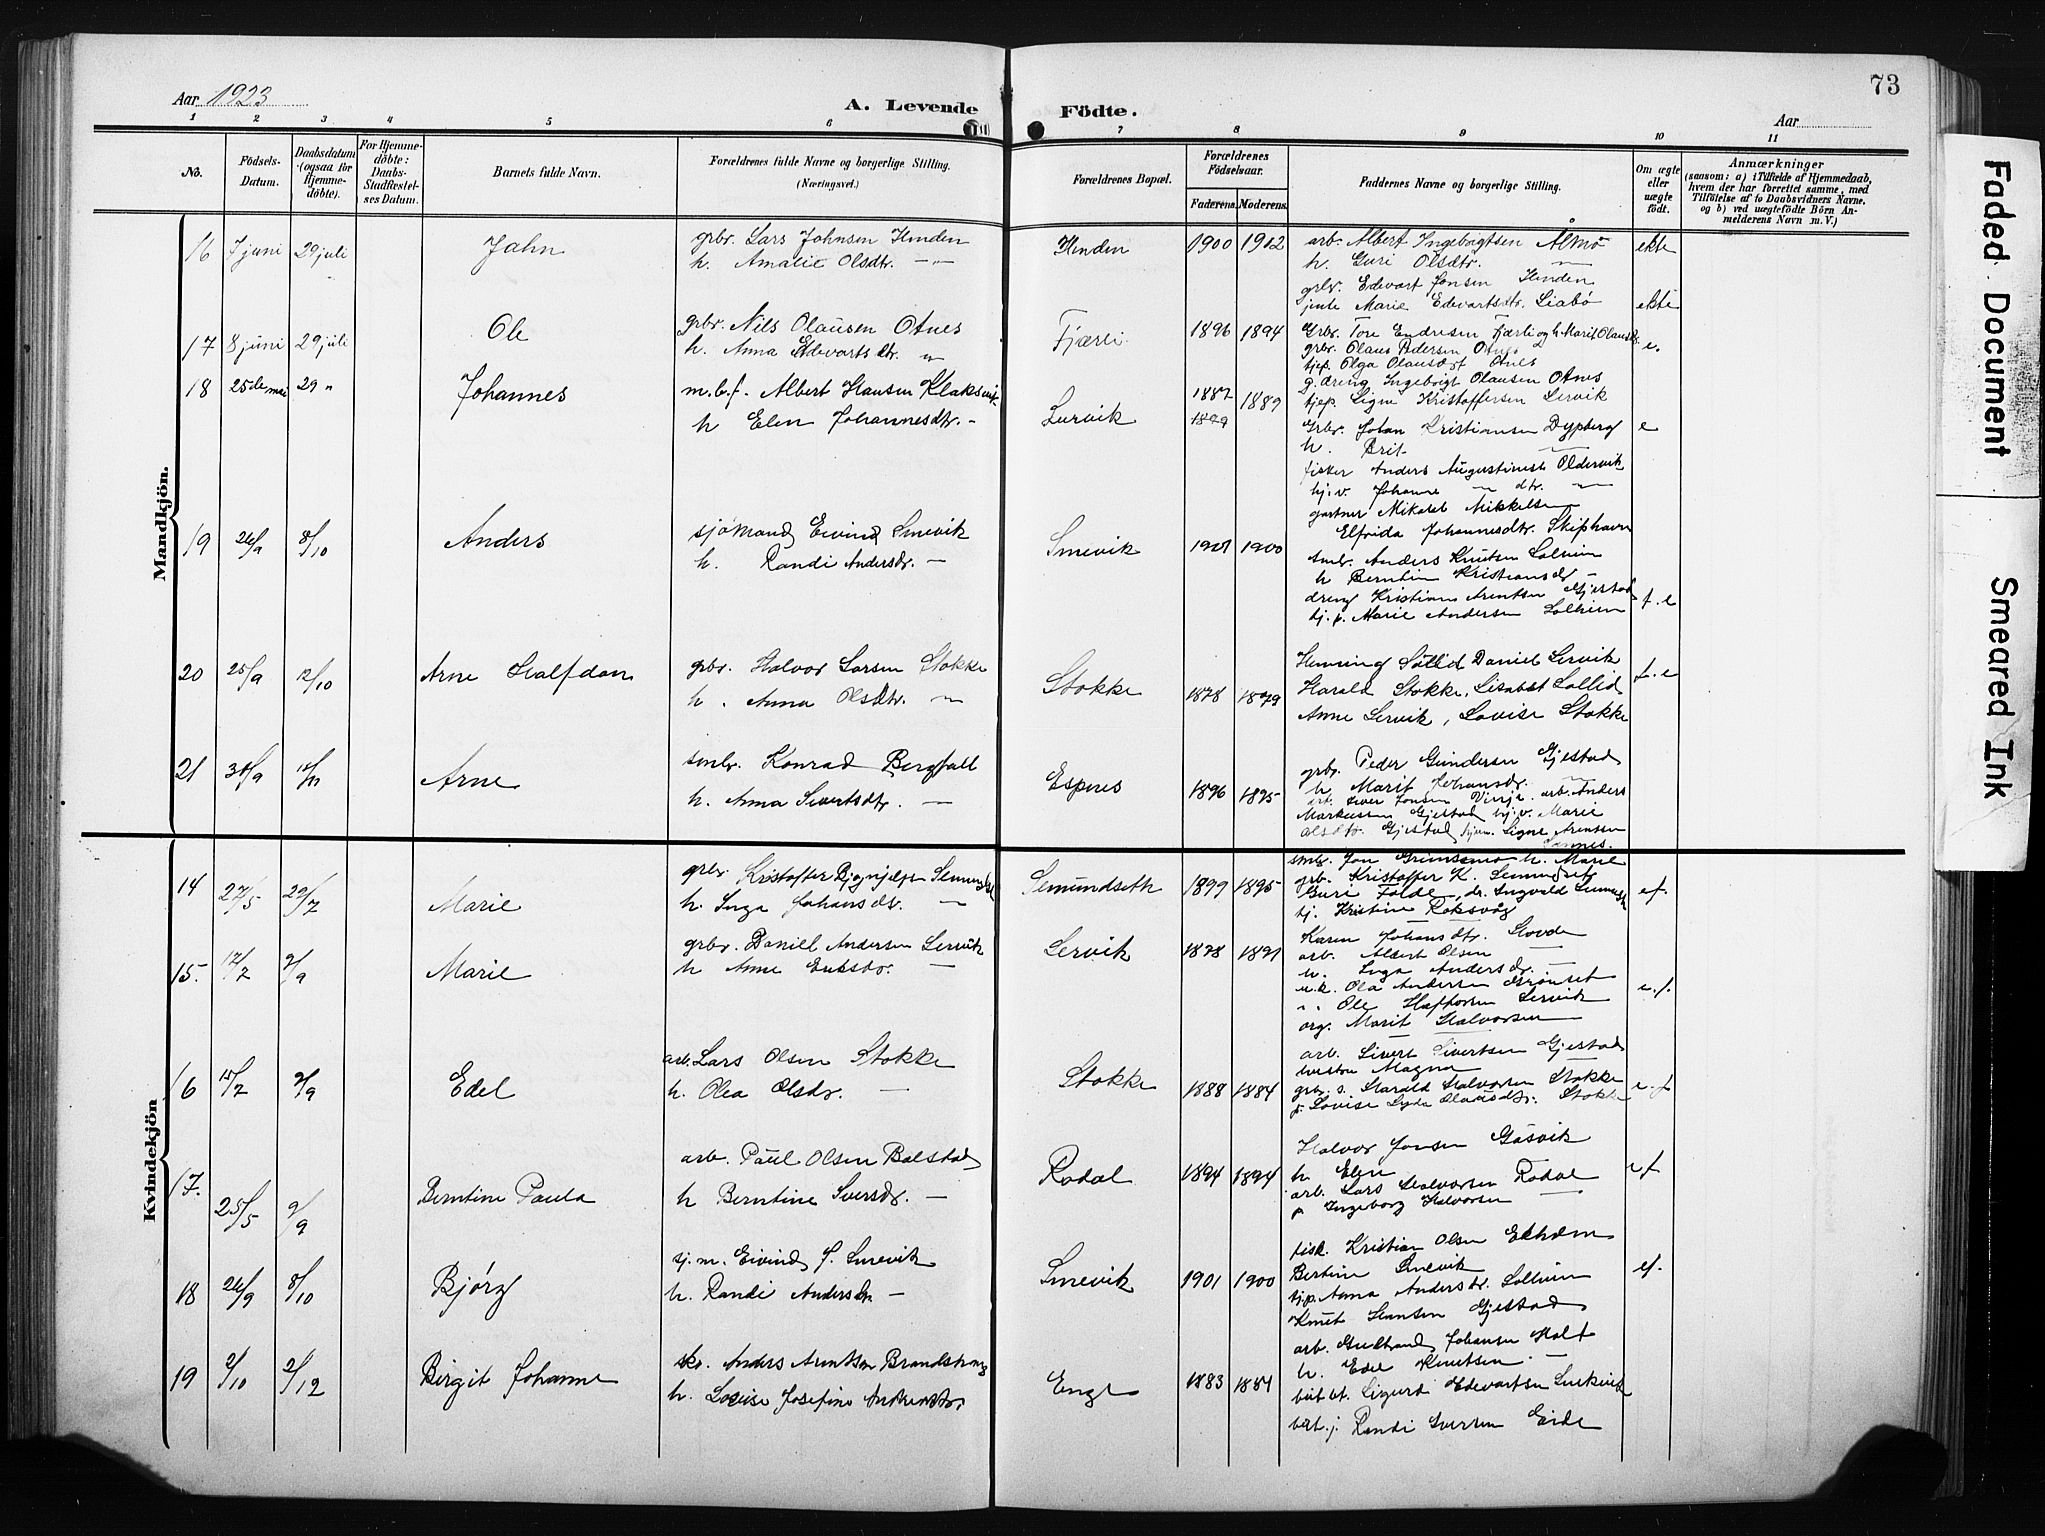 Aar 1923
A. Levende Födte.
Aar
73
1 2 3 4 5 6 7 8 9 10 11
No.
Födsels-Datum.
Daabsdatum (ogsaa for Hjemme-döbte).
For Hjemme-döbte: Daabs-Stadfæstel-ses Datum.
Barnets fulde Navn.
Forældrenes fulde Navne og borgerlige Stilling. (Næringsvei.)
Forældrenes Bopæl.
Forældrenes Födselsaar.
Faderens. Moderens.
Faddernes Navne og borgerlige Stilling.
Om ægte eller uægte födt.
Anmærkninger (saasom: a) i Tilfælde af Hjemmedaab, hvem der har forrettet samme, med Tilföielse af to Daabsvidners Navne, og b) ved uægtefödte Börn An-melderens Navn m. V.)
Mandkjön.
16 7 juni 29 juli Jahn
grbr. Lars Johnsen Henden
h. Amalie Olsdtr. —"—
Henden 1900 1902
arb. Albert Ingebrigtsen Almö ekte
h. Guri Olsdtr. —
grbr. Edevart Jonsen Henden
jente Marie Edevartsdtr. Liabö ekte
17 8 juni 29 juli Ole
grbr. Nils Olausen Otnes
h. Anna Edevartsdtr. "
Fjærli 1896 1894
Grbr. Tore Endresen Fjærli og h. Marit Olausdtr. e.
grbr. Olaus Pedersen Otnes
tjep. Olga Olausdtr Otnes
g. dreng Ingebrigt Olausen Otnes
18 25de mai 29 " Johannes
m.b.f. Albert Hansen Klaksvik
h Elen Johannesdtr. -
Lervik 1887 1889
1879
tjep. Signe Kristoffersen Lervik
Grbr. Johan Kristiansen Dypberg e
h. Brit —
fisker Anders Augustinsen Oldervik
hj.v. Johanne — dtr. —
gartner Mikael Mikkelsen
Elfrida Johannesdtr. Skiphavn
19 26/9 8/10 Anders
sjömand Eivind Smevik
h. Randi Andersdr. —
Smevik 1901 1900
smbr. Anders Knutsen Solheim
h Berntin Kristiansdr —
dreng Kristian Arentsen Gjestad f.e
tj.p. Marie Andersen Solheim
20 25/9 12/10 Arne Halfdan
grbr. Halvor Larsen Stokke
h. Anna Olsdtr. —
Stokke 1878 1879
Henning Söllid Daniel Lervik f.e
Harald Stokke, Lisabet Sollid
Anne Lervik, Lovise Stokke
21 30/9 Arne
smbr. Konrad Bergfall
h. Anna Sivertsdtr. —
Espnes 1896 1895
grbr. Peder Gundersen Gjestad
h Marit Johansdr. —
arb. Iver Jonsen Vinje. arb. Anders
Markussen Gjestad hj.v. Marie
Olsdtr. Gjestad, hjem. Signe Arentsen
Kvindekjön
14 27/5 29/7 Marie
grbr. Kristoffer Semundset
h. Inga Johansdr. —
Semundseth 1899 1895
smbr. Jon Grimsmo h. Marie
grb. Kristoffer K. Semundset ef.
Guri Folde, dr. Ingvald Semundset
tj. Kristine Roksvåg
15. 17/7 2/9 Marie
grbr. Daniel Andersen Lervik
h Anne —
Lervik 1878 1891
Karen Johansdtr. Slovde
arb. Albert Olsen —
h. Inga Andersdr. —
u.k. Ola Andersen
" " Ole Lervik e.f.
org. Marit Halvorsen —
16 15/7 2/9 Edel
arb. Lars Olsen Stokke
h. Olea Olsdr. —
Stokke 1888 1884
arb. Sivert Sivertsen Gjestad
hustru Magna —
grbr. s. Harald Halvorsen Stokke e.f
p. Lovise Lyda Olausdtr. Stokke
17. 25/5 9/9 Berntine Paula
arb. Paul Olsen Bolstad
h Berntine Iversdr. —
Rodal 1894 1894
Halvor Jonsen Gåsvik
h. Elen — e f
arb. Lars Halvorsen Rodal
p Ingeborg Halvorsen —
18 26/9 8/10 Bjørg
sj.m. Eivind J. Smevik
h. Randi Andersdr. —
Smevik 1901 1900
fisk. Kristian Olsen Ekholm
Bertine Smevik ef.
tjp. Anna Andersdr. Solheim
Knut Hansen Gjestad
19 2/10 2/12 Birgit Johanne
sko. Anders Arntsen Brandstrang
h. Lovise Josefine Andreasdtr.
Enge 1883 1881
arb. Gudbrand Johansen Holt
h. Edel Knutsen —
Sigurd Edevartsen Smevik
Randi Iversen Eide
Faded Document
Smeared Ink